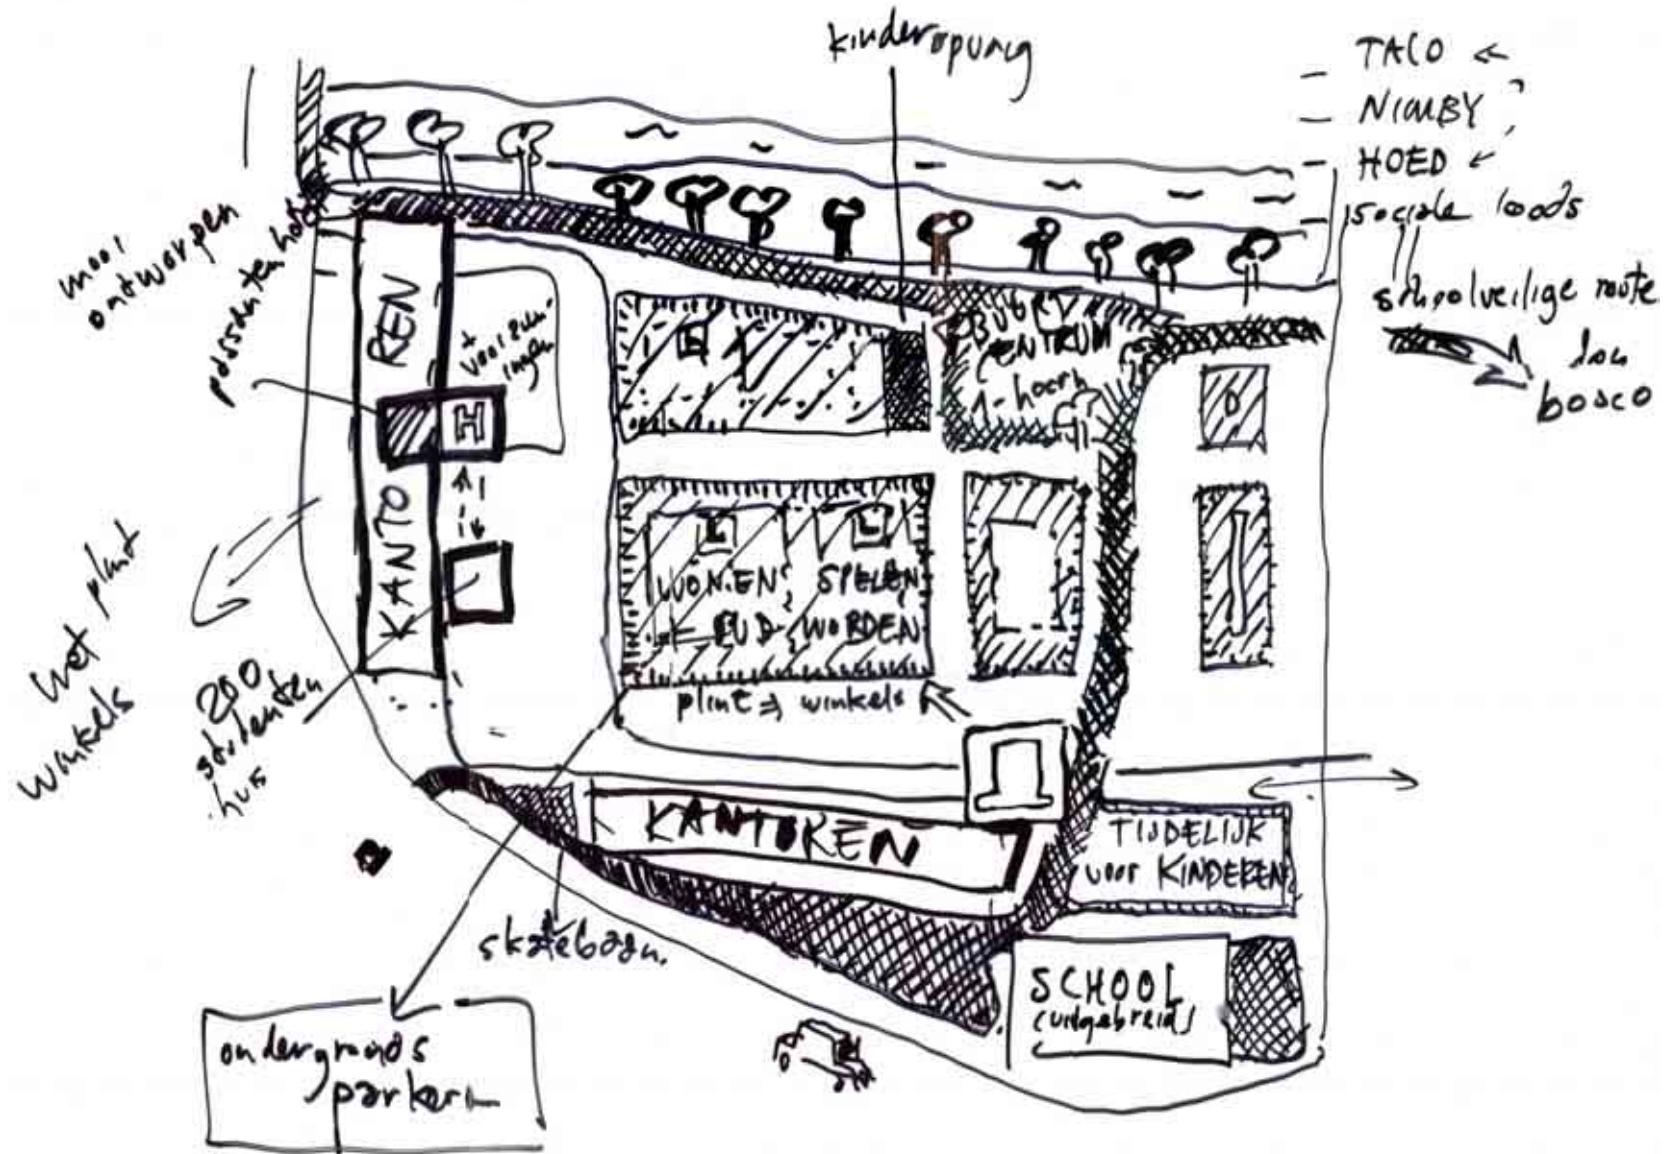 kinderopvang
- TACO
- NIMBY
- HOED
- sociale loods
schoolveilige route
don
bosco
mooi
ontworpen
passantenhotel
KANTO REN
+
voorzien-
ingen
H
BUURT
CENTRUM
1-hoorn
WONEN, SPELEN,
OUD WORDEN
plint => winkels
met plint
winkels
200
studenten
huis
KANTOREN
TIJDELIJK
voor KINDEREN
skatebaan
SCHOOL
(uitgebreid)
ondergronds
parkeren